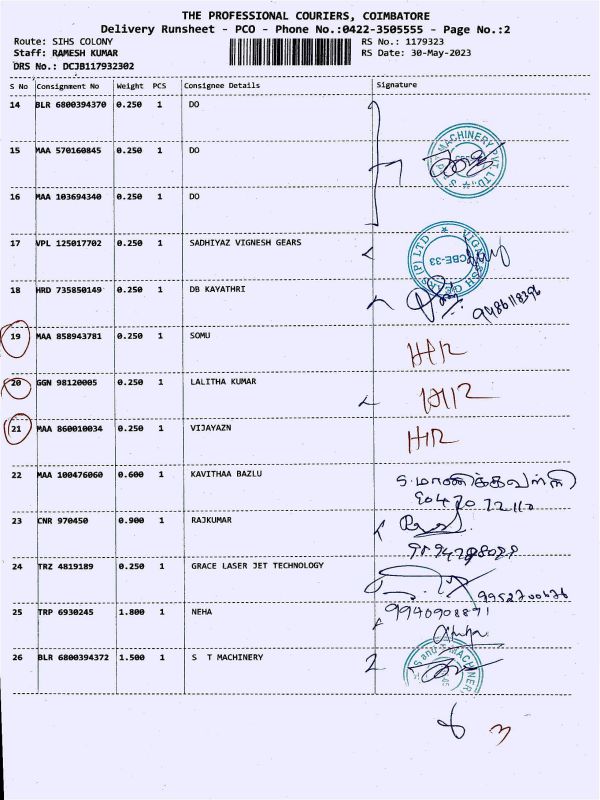 THE PROFESSIONAL COURIERS, COIMBATORE
Delivery Runsheet - PCO - Phone No.:0422-3505555 - Page No.:2
Route: SIHS COLONY RS No.: 1179323
Staff: RAMESH KUMAR RS Date: 30-May-2023
DRS No.: DCJB117932302
S No Consignment No Weight PCS Consignee Details Signature
14 BLR 6800394370 0.250 1 DO
15 MAA 570160845 0.250 1 DO
16 MAA 103694340 0.250 1 DO
17 VPL 125017702 0.250 1 SADHIYAZ VIGNESH GEARS
18 HRD 735850149 0.250 1 DB KAYATHRI
19 MAA 858943781 0.250 1 SOMU
20 GGN 98120005 0.250 1 LALITHA KUMAR
21 MAA 860010034 0.250 1 VIJAYAZN
22 MAA 100476060 0.600 1 KAVITHAA BAZLU S.மாணிக்கவள்ளி
23 CNR 970450 0.900 1 RAJKUMAR
24 TRZ 4819189 0.250 1 GRACE LASER JET TECHNOLOGY
25 TRP 6930245 1.800 1 NEHA 9940908871
26 BLR 6800394372 1.500 1 S T MACHINERY
3